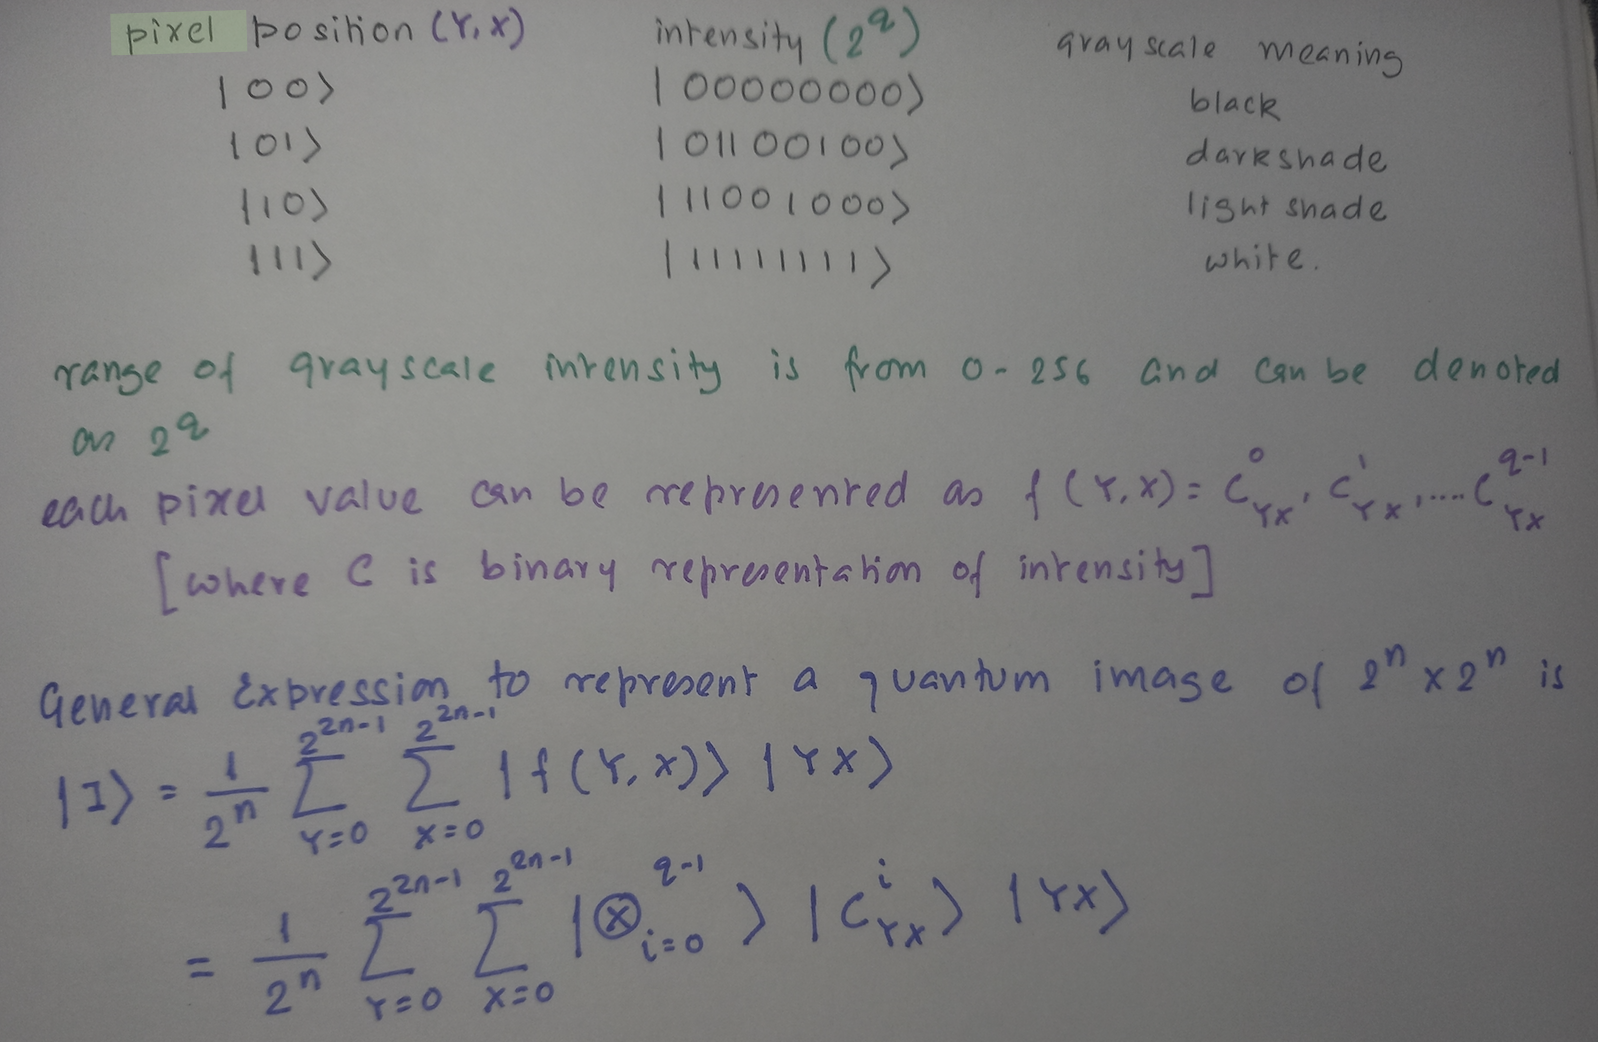 pixel position (Y,X) intensity (2^q) grayscale meaning
|00⟩ |00000000⟩ black
|01⟩ |01100100⟩ dark shade
|10⟩ |11001000⟩ light shade
|11⟩ |11111111⟩ white.
range of grayscale intensity is from 0-256 and can be denoted
as 2^q
each pixel value can be represented as f(Y,X) = C^0_YX, C^1_YX, .... C^q-1_YX
[where C is binary representation of intensity]
General Expression to represent a quantum image of 2^n x 2^n is
|I⟩ = 1/2^n ∑_{Y=0}^{2^{2n-1}} ∑_{X=0}^{2^{2n-1}} |f(Y,X)⟩ |YX⟩
= 1/2^n ∑_{Y=0}^{2^{2n-1}} ∑_{X=0}^{2^{2n-1}} |⊗_{i=0}^{q-1}⟩ |C^i_YX⟩ |YX⟩